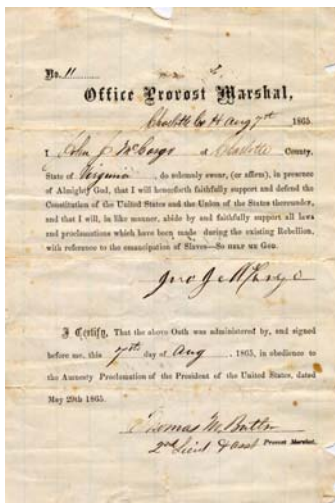 No. 11
Office Provost Marshal,
Charlotte Co H Aug 7th 1865
I John J McCargo of Charlotte County,
State of Virginia, do solemnly swear, (or affirm), in presence
of Almighty God, that I will henceforth faithfully support and defend the
Constitution of the United States and the Union of the States thereunder,
and that I will, in like manner, abide by and faithfully support all laws
and proclamations which have been made during the existing Rebellion,
with reference to the emancipation of Slaves—So help me God.
Jno J McCargo
I Certify, That the above Oath was administered by, and signed
before me, this 7th day of Aug, 1865, in obedience to
the Amnesty Proclamation of the President of the United States, dated
May 29th 1865.
Thomas M. Butler
2nd Lieut & asst Provost Marshal.